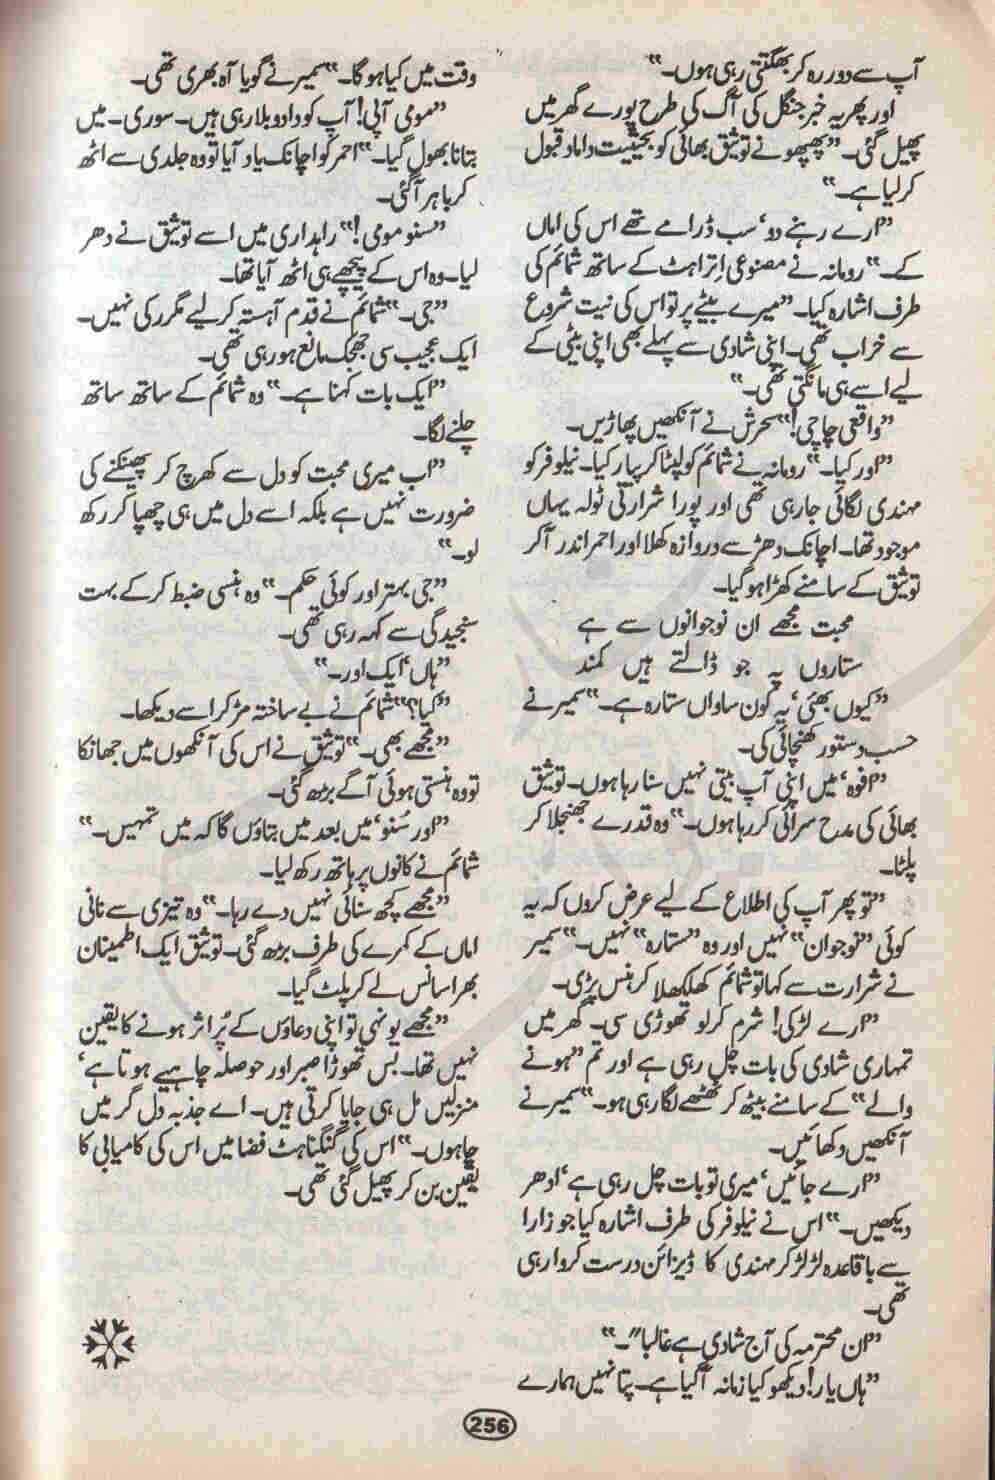 آپ سے دور رہ کر بھگتتی رہی ہوں۔"
اور پھر یہ خبر جنگل کی آگ کی طرح پورے گھر میں
پھیل گئی۔ "پھپھو نے توثیق بھائی کو بحیثیت داماد قبول
کرلیا ہے۔"
"ارے رہنے دو، سب ڈرامے تھے اس کی اماں
کے۔" رومانہ نے مصنوعی اتراہٹ کے ساتھ شمائم کی
طرف اشارہ کیا۔ "میرے بیٹے پر تو اس کی نیت شروع
سے خراب تھی۔ اپنی شادی سے پہلے بھی اپنی بیٹی کے
لیے اسے ہی مانگتی تھی۔"
"واقعی چاچی!" سحرش نے آنکھیں پھاڑیں۔
"اور کیا۔" رومانہ نے شمائم کو لپٹا کر پیار کیا۔ نیلوفر کو
مہندی لگائی جا رہی تھی اور پورا شرارتی ٹولہ یہاں
موجود تھا۔ اچانک دھڑ سے دروازہ کھلا اور احمر اندر آکر
توثیق کے سامنے کھڑا ہو گیا۔
محبت مجھے ان نوجوانوں سے ہے
ستاروں پہ جو ڈالتے ہیں کمند
"کیوں بھئی، یہ کون سا واں ستارہ ہے۔" سمیر نے
حسب دستور کھنچائی کی۔
"افوہ، میں اپنی آپ بیتی نہیں سنا رہا ہوں۔ توثیق
بھائی کی مدح سرائی کر رہا ہوں۔" وہ قدرے جھنجلا کر
پلٹا۔
"تو پھر آپ کی اطلاع کے لیے عرض کروں کہ یہ
کوئی "نوجوان" نہیں اور وہ "ستارہ" نہیں۔" سمیر
نے شرارت سے کہا تو شمائم کھلکھلا کر ہنس پڑی۔
"ارے لڑکی! شرم کرلو تھوڑی سی۔ گھر میں
تمہاری شادی کی بات چل رہی ہے اور تم "ہونے
والے" کے سامنے بیٹھ کر ٹھٹھے لگا رہی ہو۔" سمیر نے
آنکھیں دکھائیں۔
"ارے جائیں، میری تو بات چل رہی ہے، ادھر
دیکھیں۔" اس نے نیلوفر کی طرف اشارہ کیا جو زارا
سے باقاعدہ لڑ لڑ کر مہندی کا ڈیزائن درست کروا رہی
تھی۔
"ان محترمہ کی آج شادی ہے غالباً"۔"
"ہاں یار! دیکھو کیا زمانہ آگیا ہے۔ پتا نہیں ہمارے
وقت میں کیا ہوگا۔" سمیر نے گویا آہ بھری تھی۔
"مومی آپی! آپ کو دادو بلا رہی ہیں۔ سوری۔ میں
بتانا بھول گیا۔" احمر کو اچانک یاد آیا تو وہ جلدی سے اٹھ
کر باہر آگئی۔
"سنو مومی!" راہداری میں اسے توثیق نے دھر
لیا۔ وہ اس کے پیچھے ہی اٹھ آیا تھا۔
"جی۔" شمائم نے قدم آہستہ کر لیے مگر رکی نہیں۔
ایک عجیب سی جھجک مانع ہو رہی تھی۔
"ایک بات کہنا ہے۔" وہ شمائم کے ساتھ ساتھ
چلنے لگا۔
"اب میری محبت کو دل سے کھرچ کر پھینکنے کی
ضرورت نہیں ہے بلکہ اسے دل میں ہی چھپا کر رکھ
لو۔"
"جی بہتر اور کوئی حکم۔" وہ ہنسی ضبط کرکے بہت
سنجیدگی سے کہہ رہی تھی۔
"ہاں، ایک اور۔"
"کیا؟" شمائم نے بے ساختہ مڑ کر اسے دیکھا۔
"مجھے بھی۔" توثیق نے اس کی آنکھوں میں جھانکا
تو وہ ہنستی ہوئی آگے بڑھ گئی۔
"اور سُنو، میں بعد میں بتاؤں گا کہ میں تمہیں۔"
شمائم نے کانوں پر ہاتھ رکھ لیا۔
"مجھے کچھ سنائی نہیں دے رہا۔" وہ تیزی سے نانی
اماں کے کمرے کی طرف بڑھ گئی۔ توثیق ایک اطمینان
بھرا سانس لے کر پلٹ گیا۔
"مجھے یونہی تو اپنی دعاؤں کے پُراثر ہونے کا یقین
نہیں تھا۔ بس تھوڑا صبر اور حوصلہ چاہیے ہوتا ہے،
منزلیں مل ہی جایا کرتی ہیں۔ اے جذبہ دل گر میں
چاہوں۔" اس کی گنگناہٹ فضا میں اس کی کامیابی کا
یقین بن کر پھیل گئی تھی۔
256